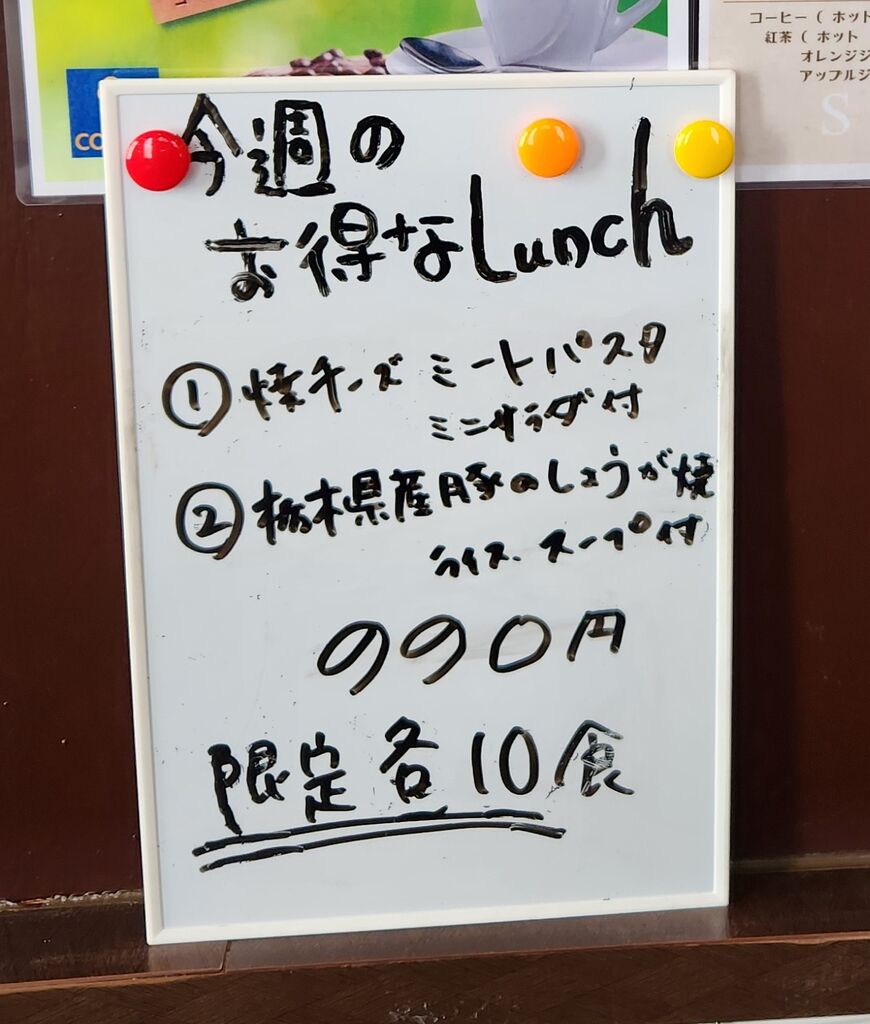 コーヒー ( ホット
紅茶 ( ホット
オレンジジ
アップルジ
S
CO
今週の
お得なLunch
① 焼チーズ ミートパスタ
ミニサラダ付
② 栃木県産豚のしょうが焼
ライス、スープ付
990円
限定 各10食